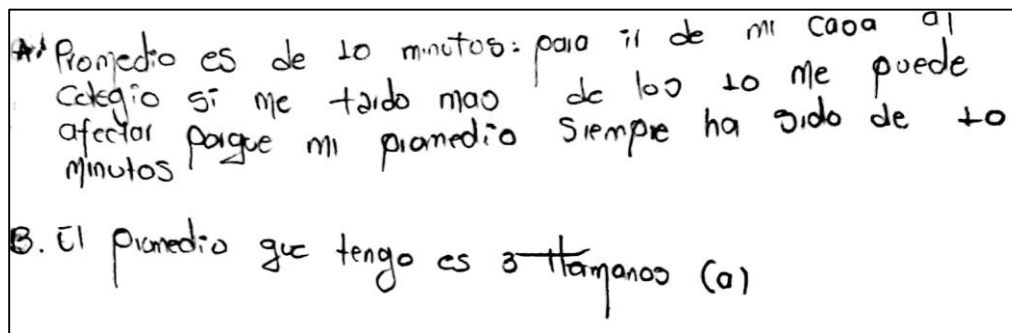 A. Promedio es de 10 minutos: para ir de mi casa al
Colegio si me tardo mas de los 10 me puede
afectar porque mi promedio siempre ha sido de 10
minutos
B. El promedio que tengo es 3 Hermanos (a)